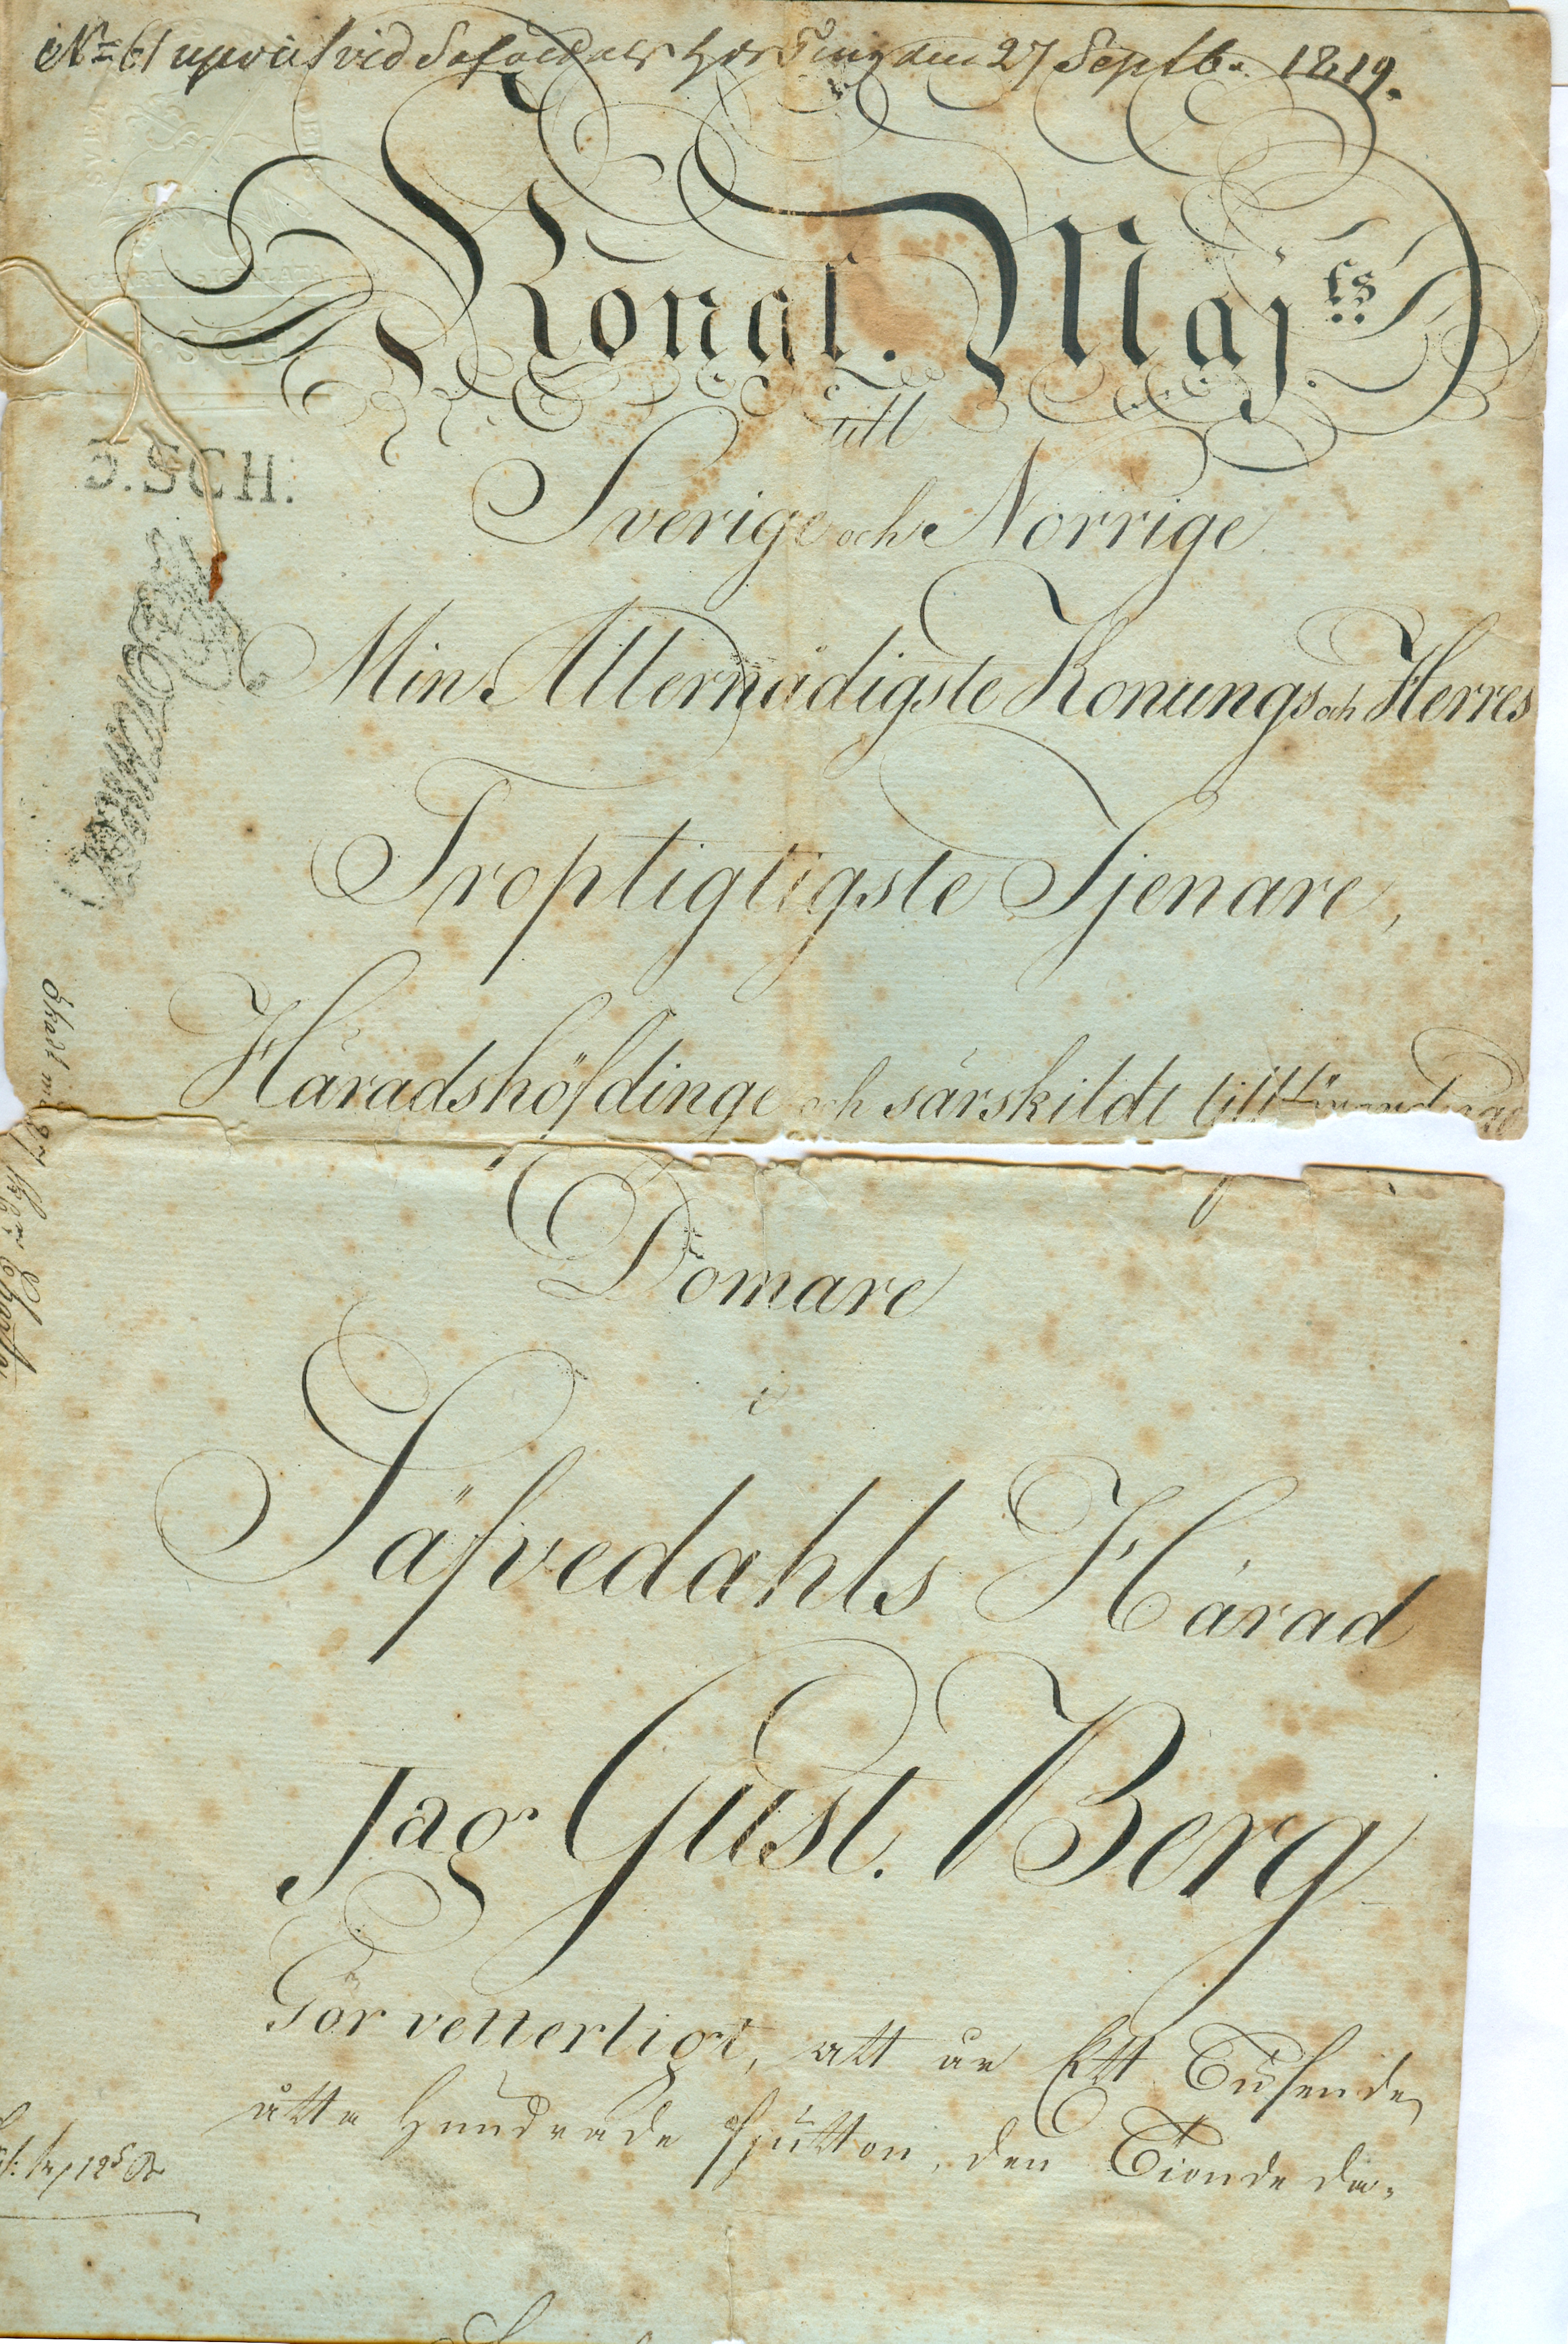 No 61 upvist vid Säfvedals Hds Ting den 27 Septb. 1819.
Kongl. Maj:ts
till
Sverige och Norrige
Min Allernådigste Konungs och Herres
3.SCH.
Troptigtigste Tjenare,
Häradshöfdinge och särskildt tillförordnad
Domare
i
Säfvedahls Härad
Jag Gust. Berg
Gör vetterligt, att år Ett Tusende
åtta Hundrade fjutton, den Tionde da-